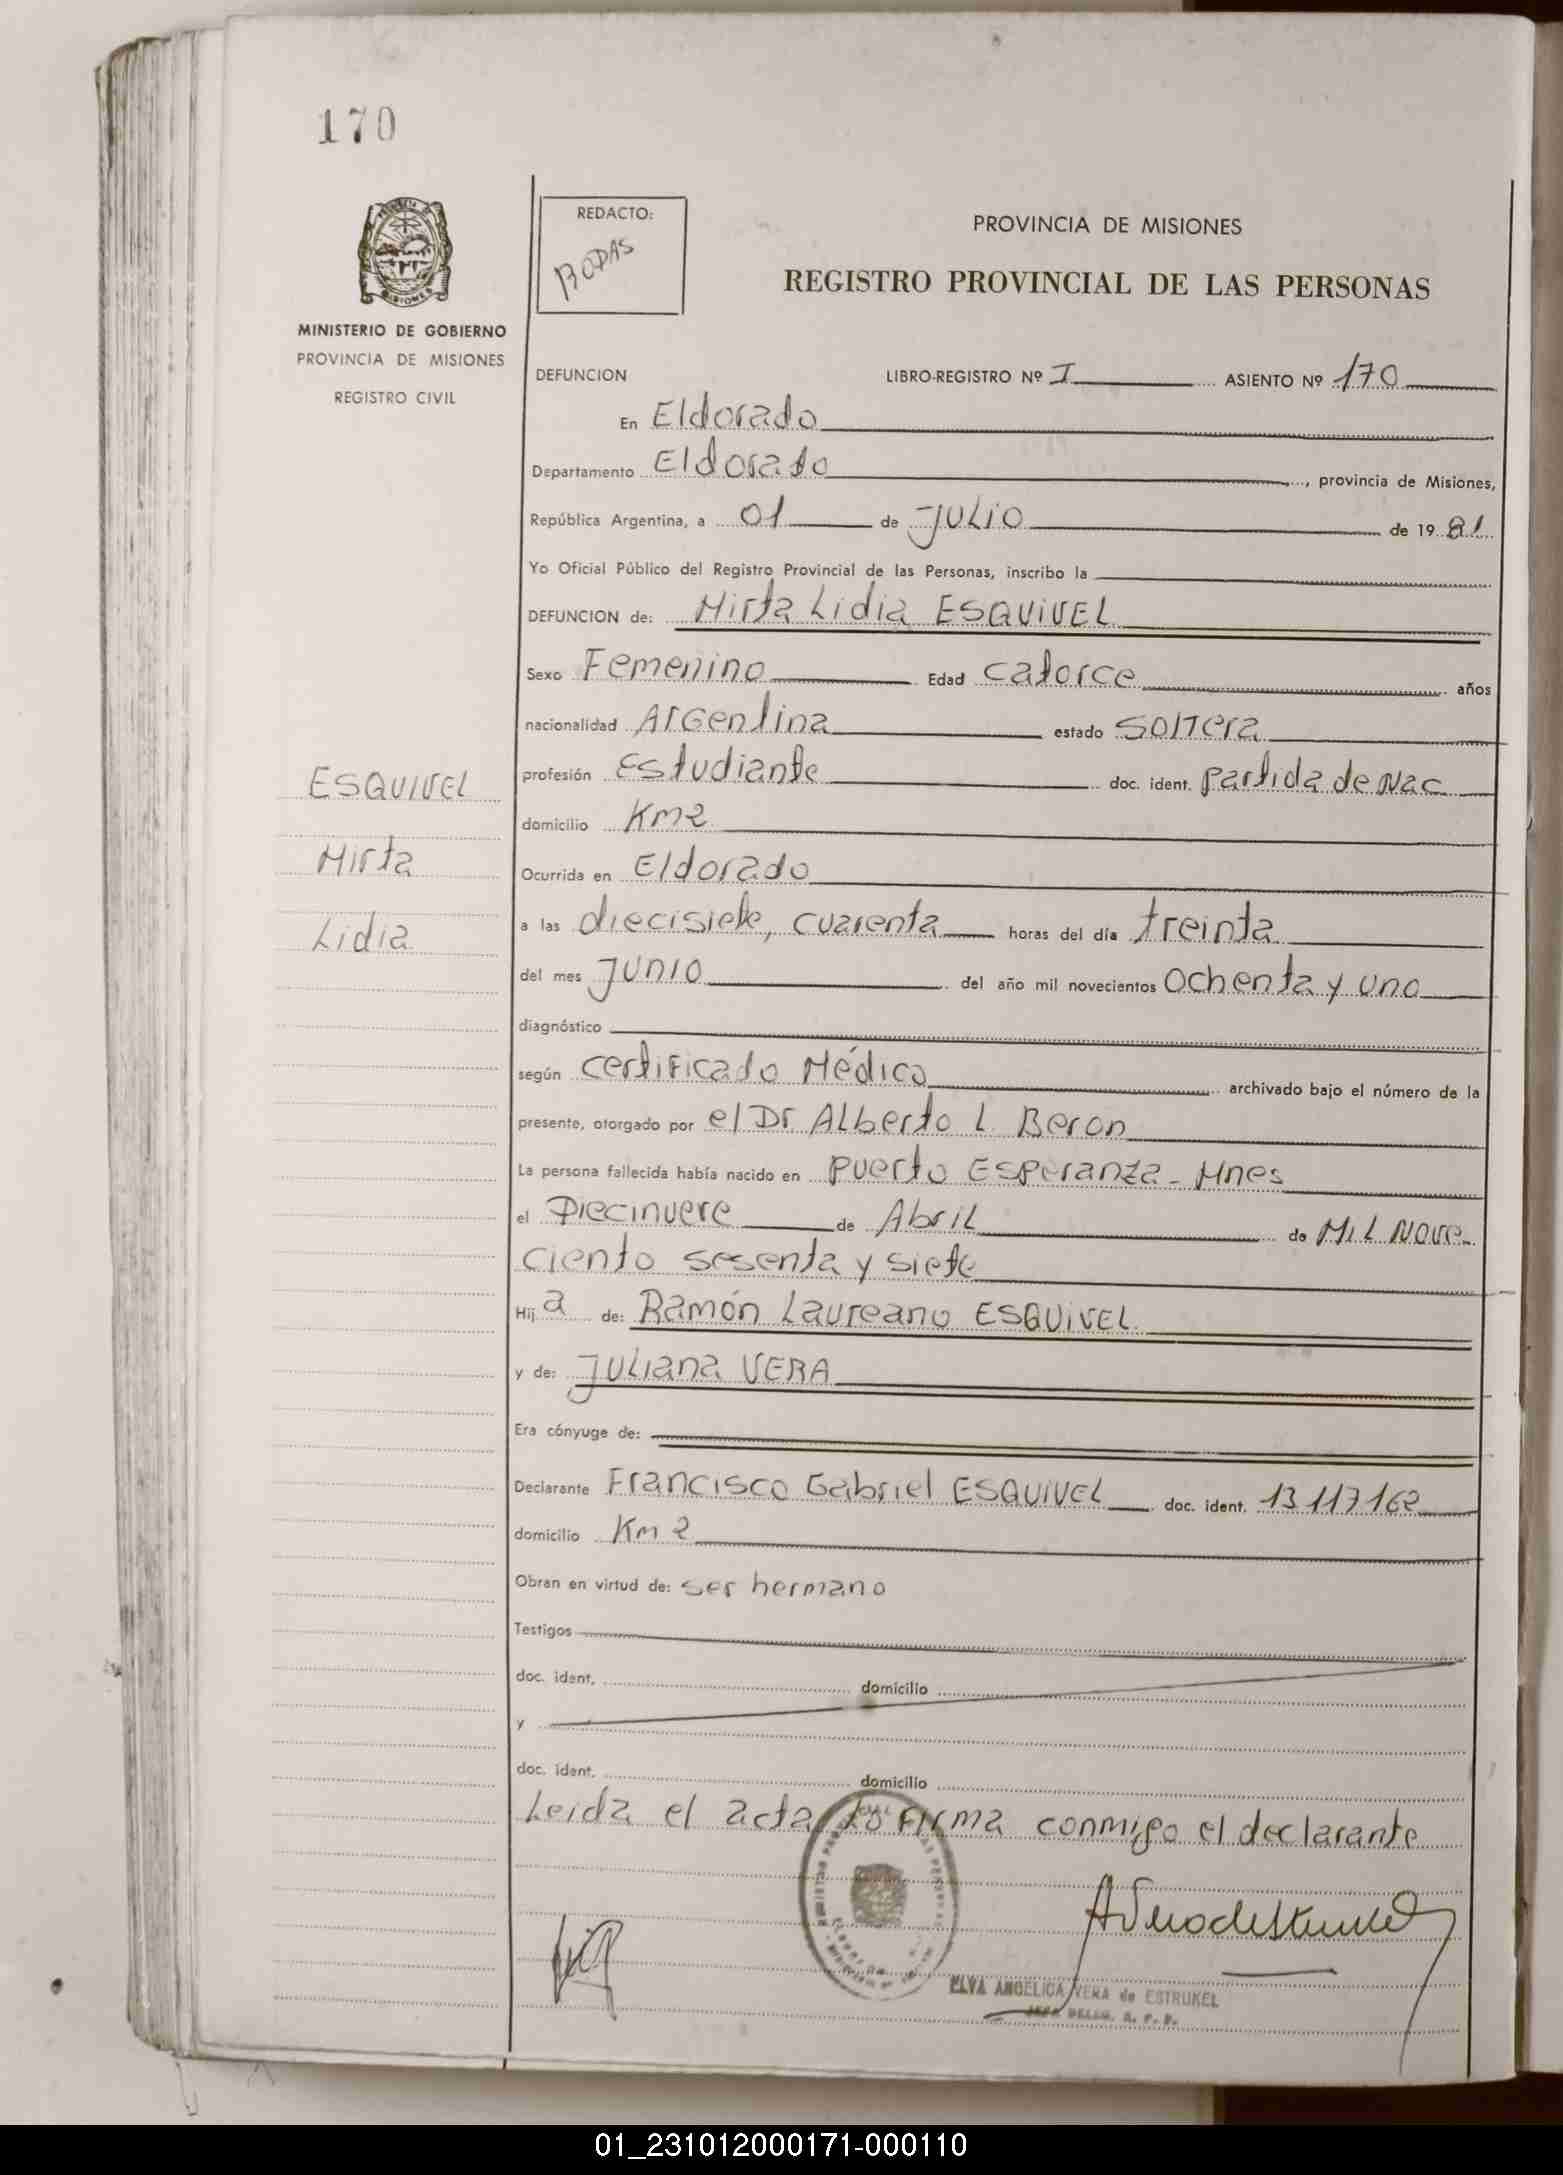 170
REDACTO:
RODAS
PROVINCIA DE MISIONES
REGISTRO PROVINCIAL DE LAS PERSONAS
MINISTERIO DE GOBIERNO
PROVINCIA DE MISIONES
REGISTRO CIVIL
DEFUNCION LIBRO-REGISTRO Nº I ASIENTO Nº 170
En Eldorado
Departamento Eldorado, provincia de Misiones,
República Argentina, a 01 de JULIO de 19 81
Yo Oficial Público del Registro Provincial de las Personas, inscribo la
DEFUNCION de: Mirta Lidia ESQUIVEL
Sexo Femenino Edad catorce años
nacionalidad Argentina estado soltera
ESQUIVEL
Mirta
Lidia
profesión Estudiante doc. ident. partida de Nac
domicilio Km2
Ocurrida en Eldorado
a las diecisiete, cuarenta horas del día treinta
del mes JUNIO del año mil novecientos ochenta y uno
diagnóstico
según certificado Médico archivado bajo el número de la
presente, otorgado por el Dr Alberto L. Beron
La persona fallecida había nacido en Puerto Esperanza - Mnes
el Diecinueve de Abril de Mil Nove
ciento sesenta y siete
Hij a de: Ramón Laureano ESQUIVEL
y de: Juliana VERA
Era cónyuge de:
Declarante Francisco Gabriel ESQUIVEL doc. ident. 13117162
domicilio Km 2
Obran en virtud de: ser hermano
Testigos
doc. ident. domicilio
y
doc. ident. domicilio
Leida el acta lo firma conmigo el declarante
ELVA ANGELICA VERA de ESTRUKEL
01_231012000171-000110